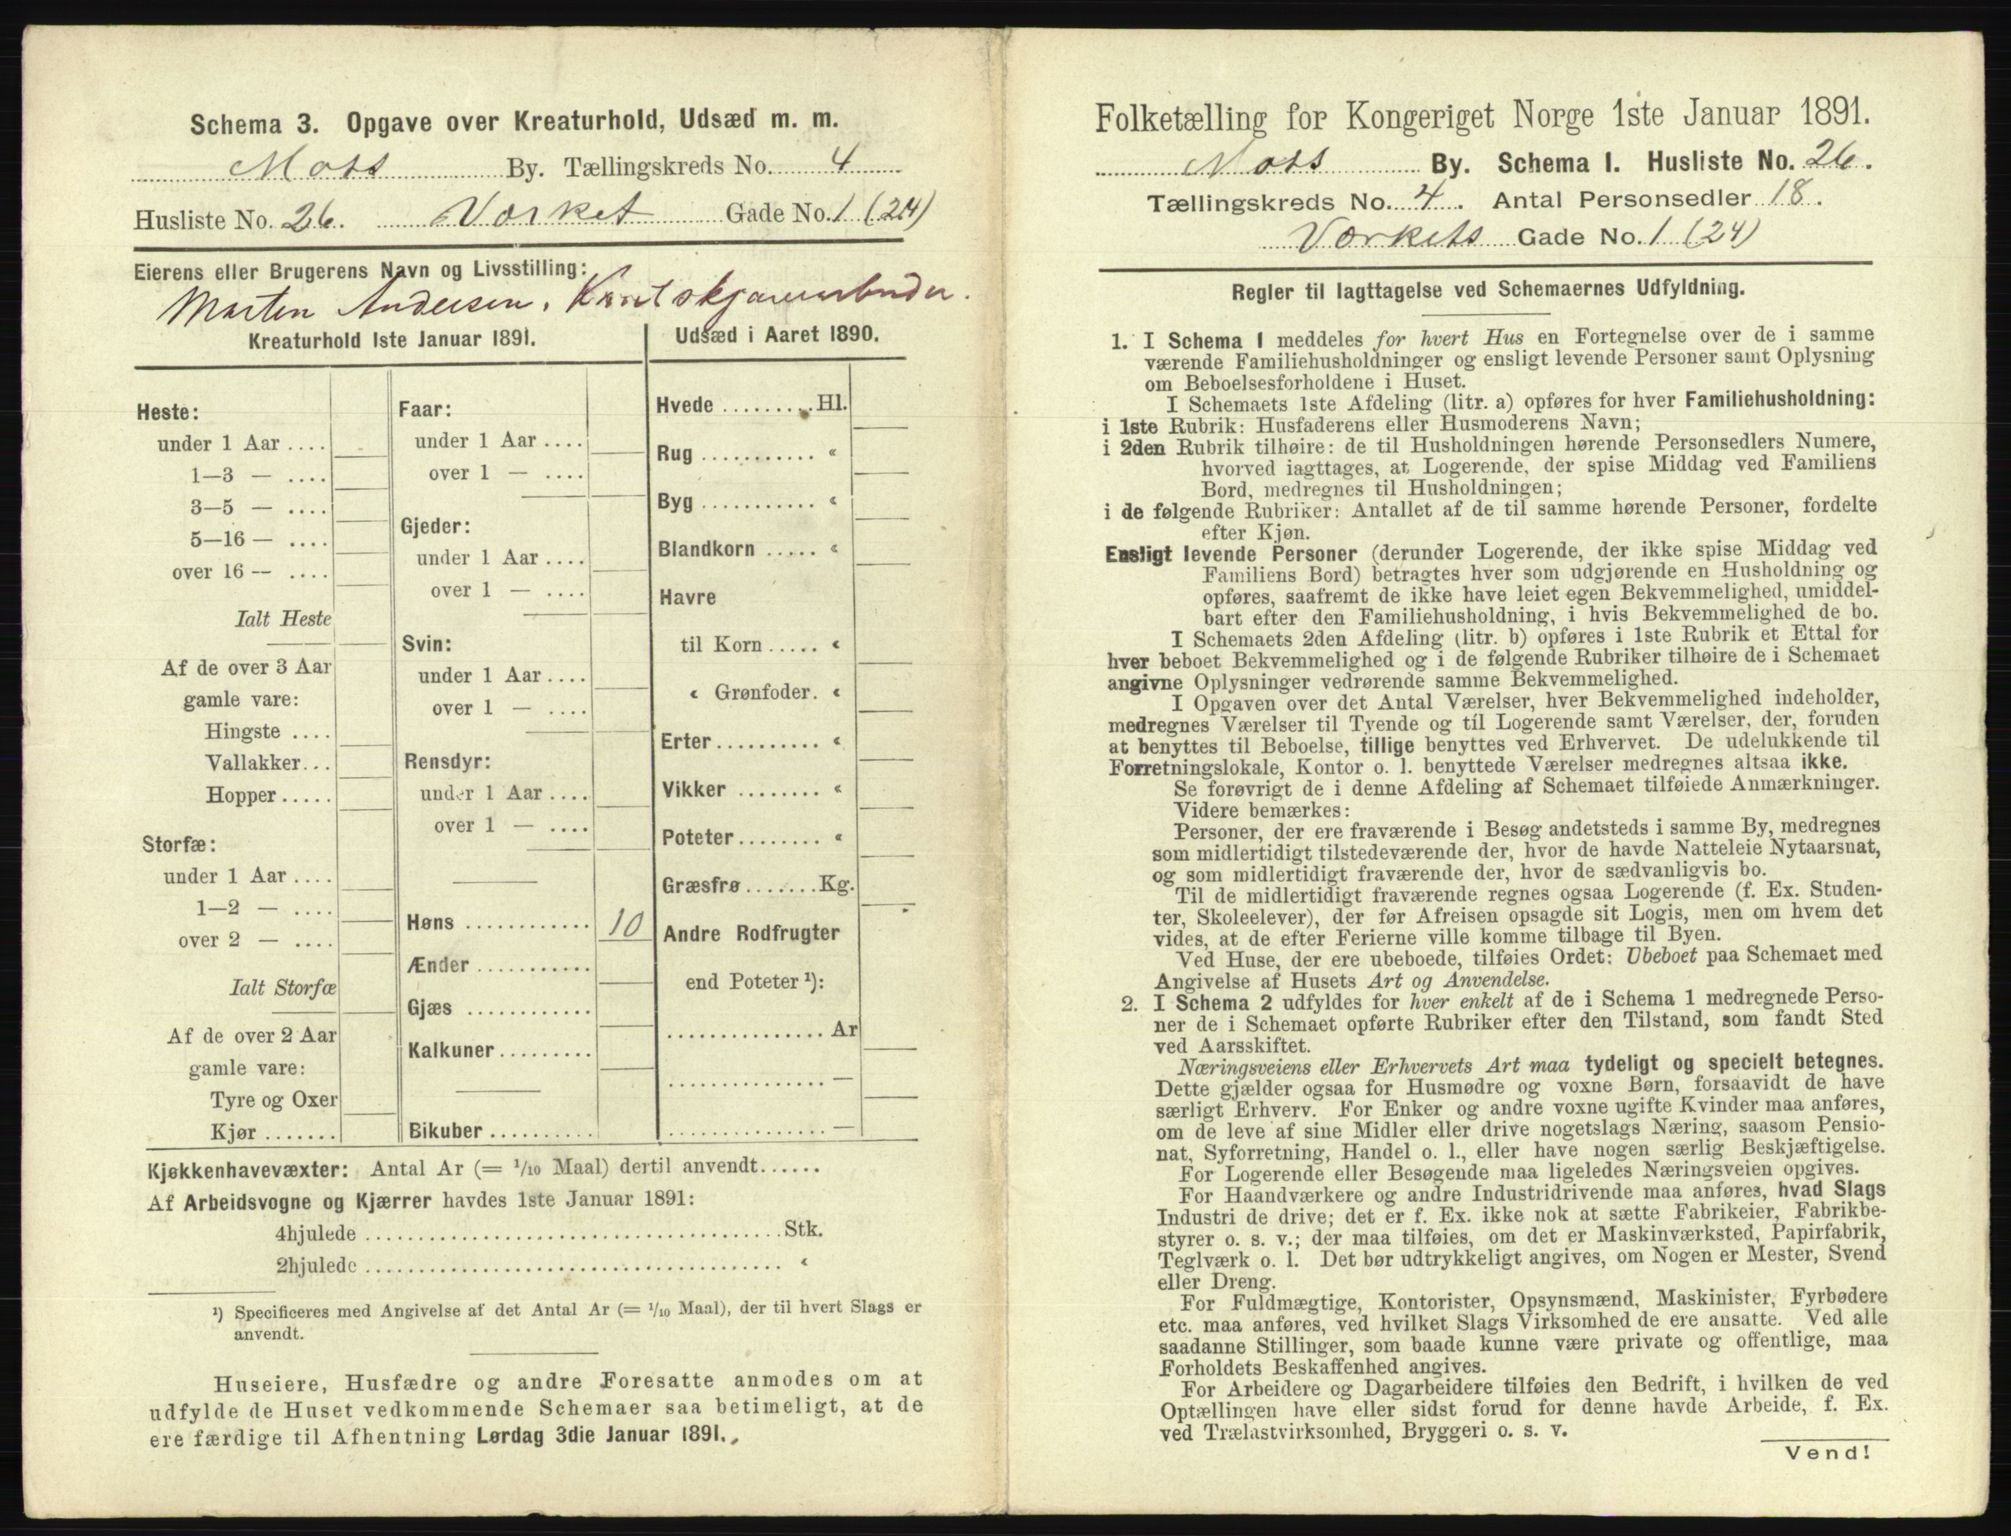 Schema 3. Opgave over Kreaturhold, Udsæd m. m.
Moss By. Tællingskreds No. 4
Husliste No. 26. Værket Gade No. 1 (24)
Eierens eller Brugerens Navn og Livsstilling:
Marten Andersen,
Kreaturhold 1ste Januar 1891.
Heste:
under 1 Aar ....
1—3 — ....
3—5 — ....
5—16 — ....
over 16 — ....
Ialt Heste
Af de over 3 Aar
gamle vare:
Hingste ....
Vallakker...
Hopper.....
Storfæ:
under 1 Aar ....
1—2 — ....
over 2 — ....
Ialt Storfæ
Af de over 2 Aar
gamle vare:
Tyre og Oxer
Kjør .......
Faar:
under 1 Aar ....
over 1 — ....
Gjeder:
under 1 Aar ....
over 1 — ....
Svin:
under 1 Aar ....
over 1 — ....
Rensdyr:
under 1 Aar ....
over 1 — ....
Høns ............ 10
Ænder ...........
Gjæs ............
Kalkuner.........
Bikuber ..........
Udsæd i Aaret 1890.
Hvede .........Hl.
Rug ........... «
Byg ........... «
Blandkorn ..... «
Havre
til Korn ..... «
« Grønfoder. «
Erter.......... «
Vikker ........ «
Poteter........ «
Græsfrø.......Kg.
Andre Rodfrugter
end Poteter ¹):
............... Ar
............... —
............... —
Kjøkkenhavevæxter: Antal Ar (= 1/10 Maal) dertil anvendt......
Af Arbeidsvogne og Kjærrer havdes 1ste Januar 1891:
4hjulede ....................................... Stk.
2hjulede ....................................... «
¹) Specificeres med Angivelse af det Antal Ar (= 1/10 Maal), der til hvert Slags er
anvendt.
Huseiere, Husfædre og andre Foresatte anmodes om at
udfylde de Huset vedkommende Schemaer saa betimeligt, at de
ere færdige til Afhentning Lørdag 3die Januar 1891.
Folketælling for Kongeriget Norge 1ste Januar 1891.
Moss By. Schema I. Husliste No. 26.
Tællingskreds No. 4. Antal Personsedler 18.
Værkets Gade No. 1 (24)
Regler til Iagttagelse ved Schemaernes Udfyldning.
1. I Schema 1 meddeles for hvert Hus en Fortegnelse over de i samme
værende Familiehusholdninger og ensligt levende Personer samt Oplysning
om Beboelsesforholdene i Huset.
I Schemaets 1ste Afdeling (litr. a) opføres for hver Familiehusholdning:
i 1ste Rubrik: Husfaderens eller Husmoderens Navn;
i 2den Rubrik tilhøire: de til Husholdningen hørende Personsedlers Numere,
hvorved iagttages, at Logerende, der spise Middag ved Familiens
Bord, medregnes til Husholdningen;
i de følgende Rubriker: Antallet af de til samme hørende Personer, fordelte
efter Kjøn.
Ensligt levende Personer (derunder Logerende, der ikke spise Middag ved
Familiens Bord) betragtes hver som udgjørende en Husholdning og
opføres, saafremt de ikke have leiet egen Bekvemmelighed, umiddel-
bart efter den Familiehusholdning, i hvis Bekvemmelighed de bo.
I Schemaets 2den Afdeling (litr. b) opføres i 1ste Rubrik et Ettal for
hver beboet Bekvemmelighed og i de følgende Rubriker tilhøire de i Schemaet
angivne Oplysninger vedrørende samme Bekvemmelighed.
I Opgaven over det Antal Værelser, hver Bekvemmelighed indeholder,
medregnes Værelser til Tyende og til Logerende samt Værelser, der, foruden
at benyttes til Beboelse, tillige benyttes ved Erhvervet. De udelukkende til
Forretningslokale, Kontor o. l. benyttede Værelser medregnes altsaa ikke.
Se forøvrigt de i denne Afdeling af Schemaet tilføiede Anmærkninger.
Videre bemærkes:
Personer, der ere fraværende i Besøg andetsteds i samme By, medregnes
som midlertidigt tilstedeværende der, hvor de havde Natteleie Nytaarsnat,
og som midlertidigt fraværende der, hvor de sædvanligvis bo.
Til de midlertidigt fraværende regnes ogsaa Logerende (f. Ex. Studen-
ter, Skoleelever), der før Afreisen opsagde sit Logis, men om hvem det
vides, at de efter Ferierne ville komme tilbage til Byen.
Ved Huse, der ere ubeboede, tilføies Ordet: Ubeboet paa Schemaet med
Angivelse af Husets Art og Anvendelse.
2. I Schema 2 udfyldes for hver enkelt af de i Schema 1 medregnede Perso-
ner de i Schemaet opførte Rubriker efter den Tilstand, som fandt Sted
ved Aarsskiftet.
Næringsveiens eller Erhvervets Art maa tydeligt og specielt betegnes.
Dette gjælder ogsaa for Husmødre og voxne Børn, forsaavidt de have
særligt Erhverv. For Enker og andre voxne ugifte Kvinder maa anføres,
om de leve af sine Midler eller drive nogetslags Næring, saasom Pensio-
nat, Syforretning, Handel o. l., eller have nogen særlig Beskjæftigelse.
For Logerende eller Besøgende maa ligeledes Næringsveien opgives.
For Haandværkere og andre Industridrivende maa anføres, hvad Slags
Industri de drive; det er f. Ex. ikke nok at sætte Fabrikeier, Fabrikbe-
styrer o. s. v.; der maa tilføies, om det er Maskinværksted, Papirfabrik,
Teglværk o. l. Det bør udtrykkeligt angives, om Nogen er Mester, Svend
eller Dreng.
For Fuldmægtige, Kontorister, Opsynsmænd, Maskinister, Fyrbødere
etc. maa anføres, ved hvilket Slags Virksomhed de ere ansatte. Ved alle
saadanne Stillinger, som baade kunne være private og offentlige, maa
Forholdets Beskaffenhed angives.
For Arbeidere og Dagarbeidere tilføies den Bedrift, i hvilken de ved
Optællingen have eller sidst forud for denne havde Arbeide, f. Ex.
ved Trælastvirksomhed, Bryggeri o. s. v.
Vend!